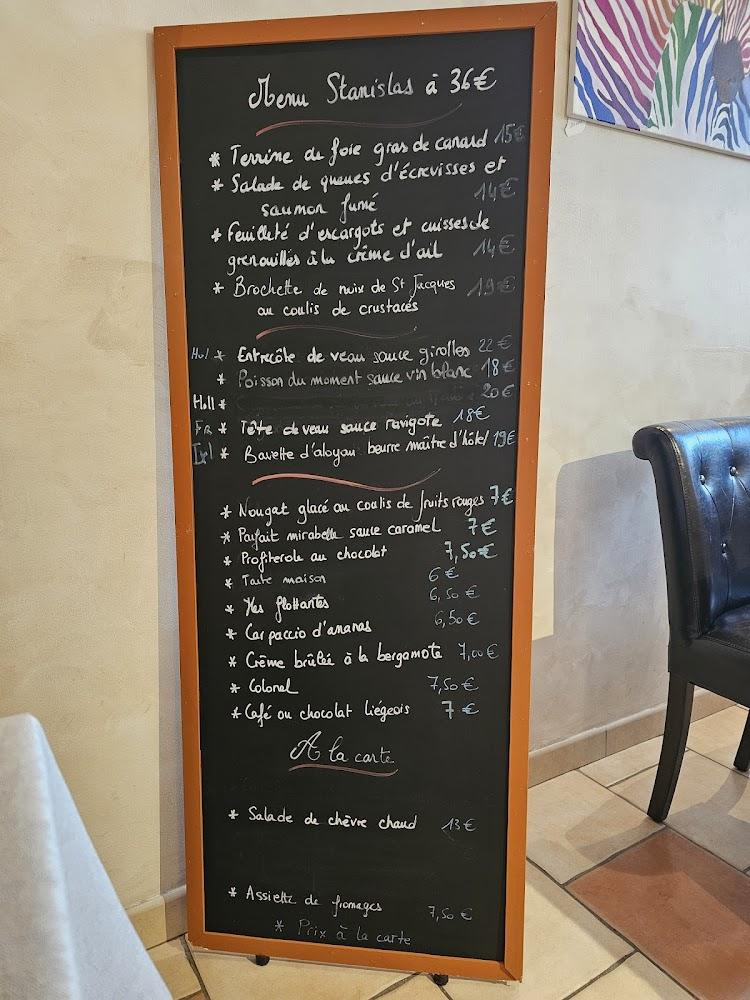 Menu Stanislas à 36€
* Terrine de foie gras de canard 15€
* Salade de queues d'écrevisses et
saumon fumé 14€
* Feuilleté d'escargots et cuisses de
grenouilles à la crème d'ail 14€
* Brochette de noix de St Jacques 19€
au coulis de crustacés
Hol * Entrecôte de veau sauce girolles 22€
* Poisson du moment sauce vin blanc 18€
Holl * 20€
FR * Tête de veau sauce ravigote 18€
* Bavette d'aloyau beurre maître d'hôtel 19€
* Nougat glacé au coulis de fruits rouges 7€
* Parfait mirabelle sauce caramel 7€
* Profiterole au chocolat 7,50€
* Tarte maison 6€
* Iles flottantes 6,50€
* Carpaccio d'ananas 6,50€
* Crème brûlée à la bergamote 7,00€
* Colonel 7,50€
* Café ou chocolat liégeois 7€
A la carte
* Salade de chèvre chaud 13€
* Assiette de fromages 7,50€
* Prix à la carte